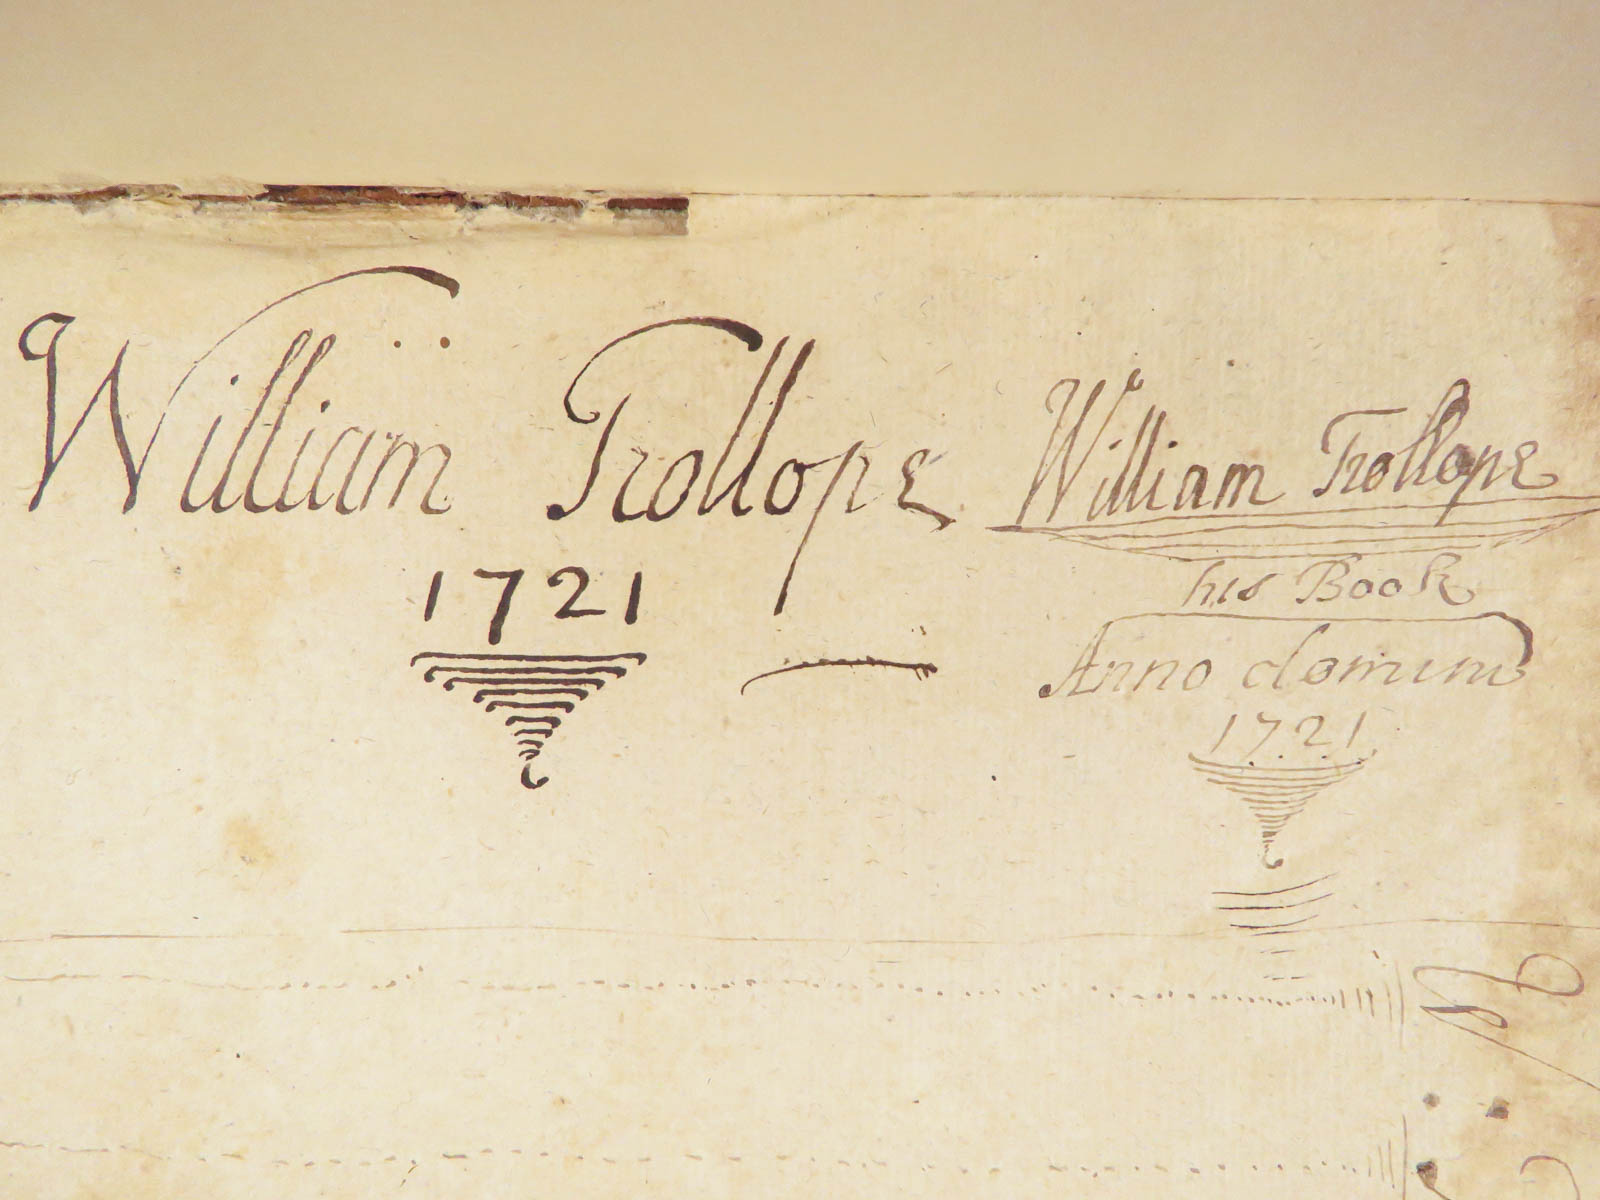 William Trollope
1721
William Trollope
his Book
Anno domini
1721